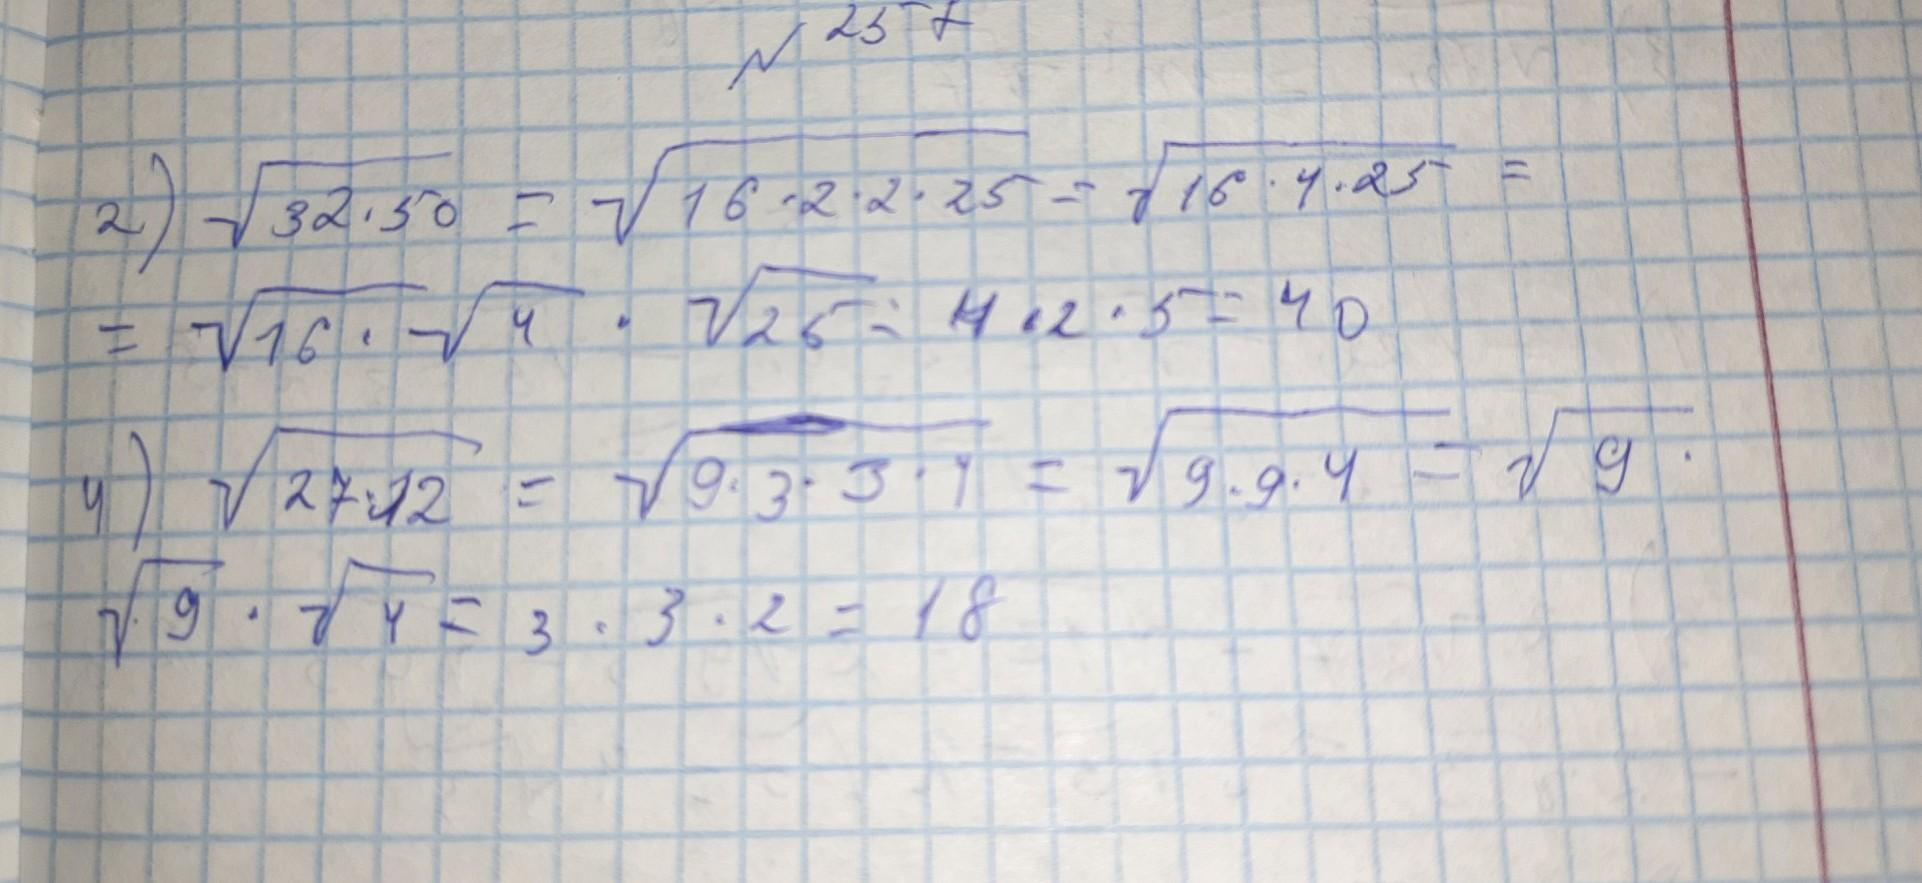 № 257
2) √32·50 = √16·2·2·25 = √16·4·25 =
= √16 · √4 · √25 = 4·2·5 = 40
4) √27·12 = √9·3·3·4 = √9·9·4 = √9 ·
√9 · √4 = 3 · 3 · 2 = 18